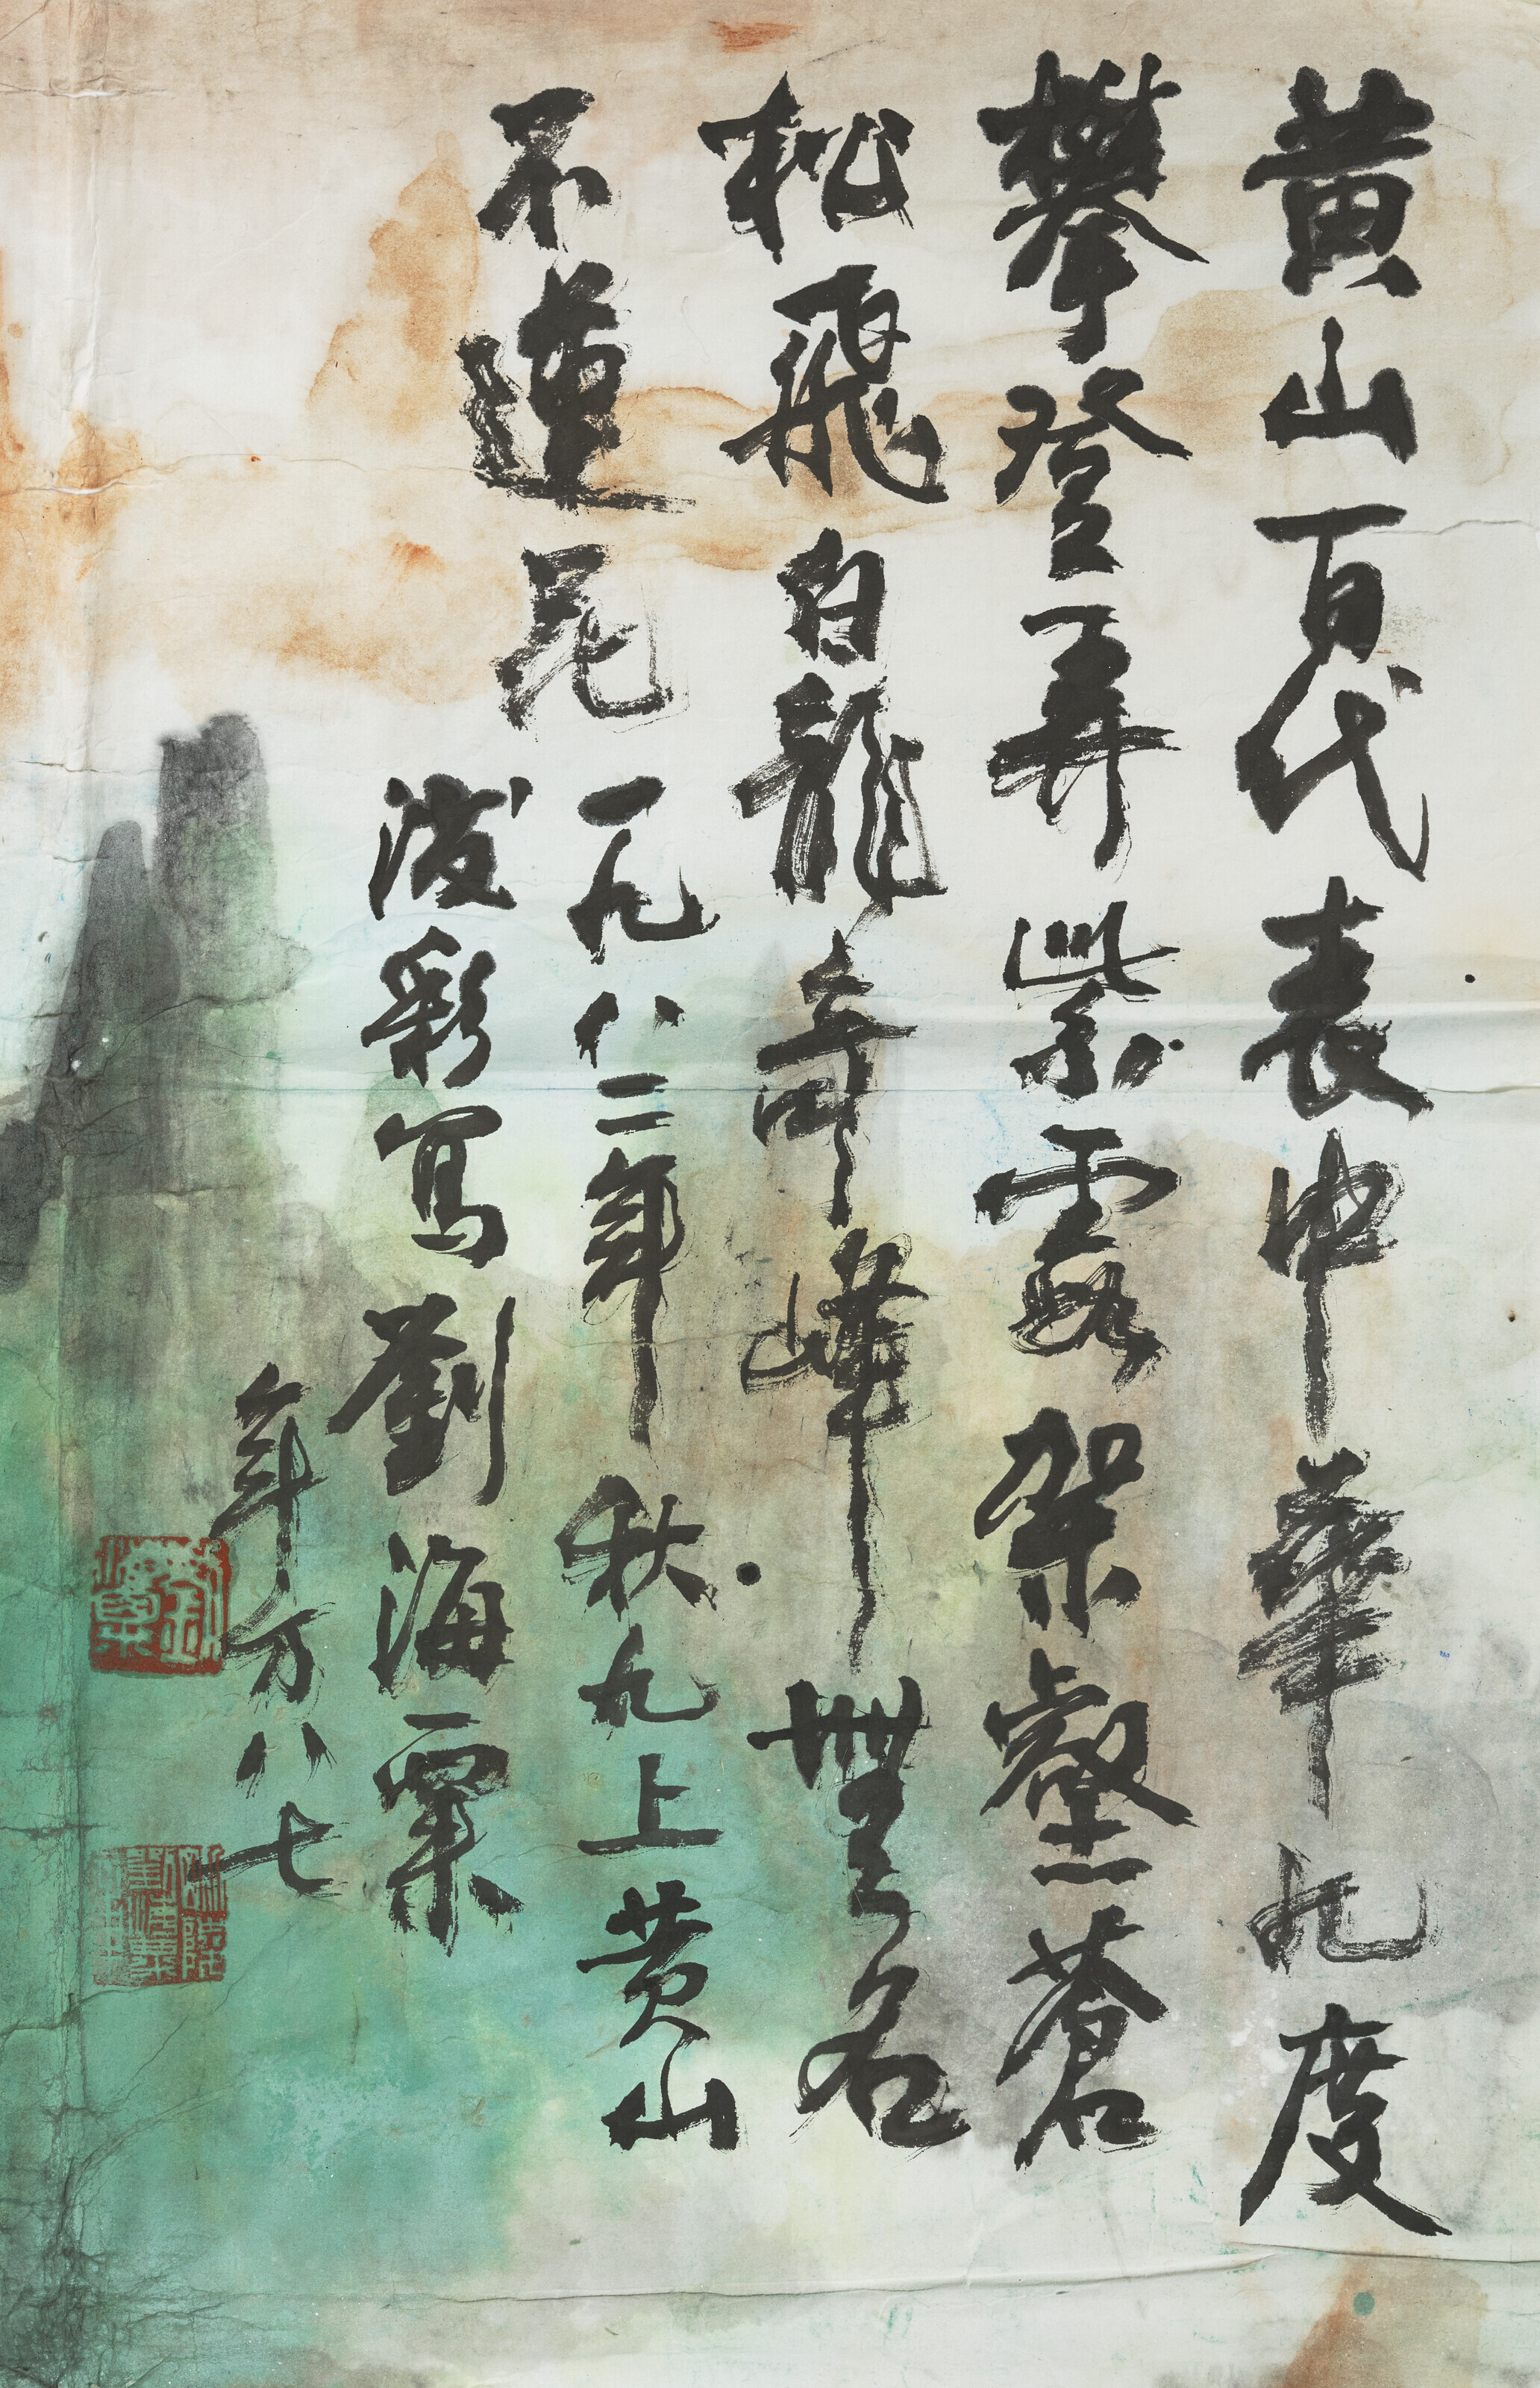 黄山百代表中華九度
攀登弄紫霞架壑蒼
松飛白龍奇峰無名
不遑昆
一九八二年秋九上黄山
潑彩寫劉海粟
年方八七
劉海粟